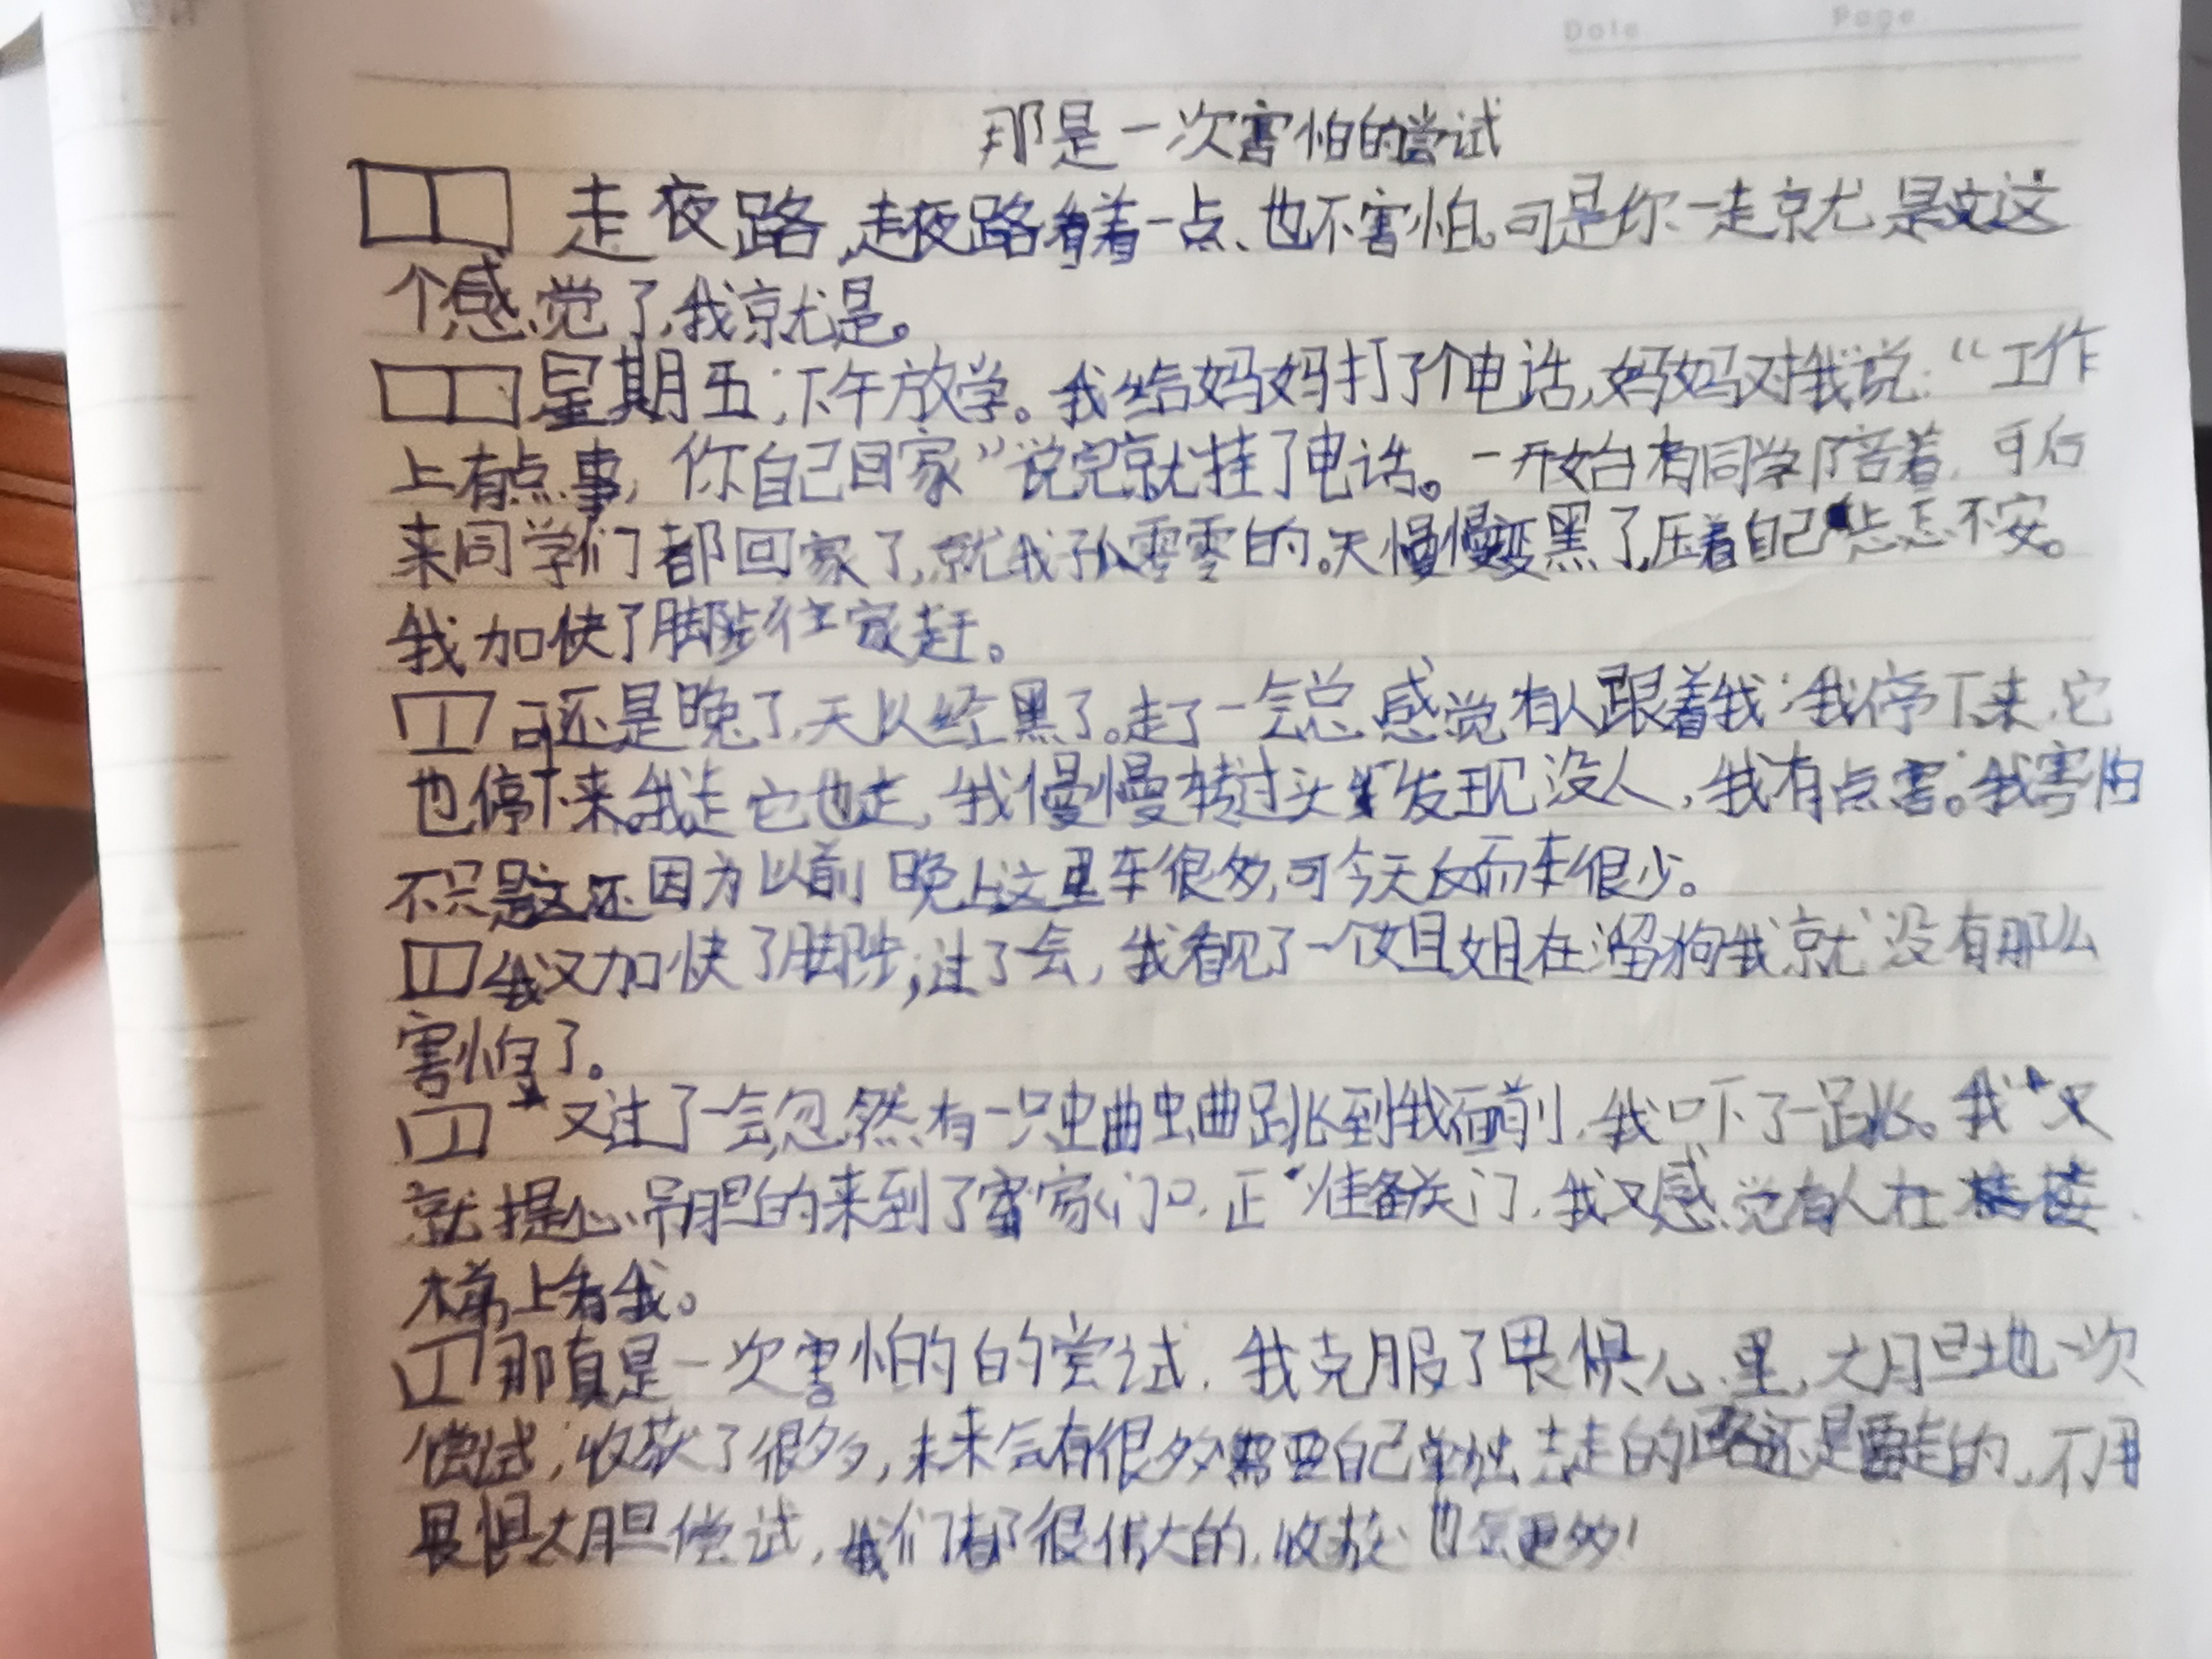 Date Page
那是一次害怕的尝试
走夜路,走夜路看着一点、也不害怕。可是你一走就是这
个感觉了,我就是。
星期五,下午放学。我给妈妈打了个电话,妈妈对我说:“工作
上有点事,你自己回家”说完就挂了电话。一开始有同学陪着,可后
来同学们都回家了,就我孤零零的。天慢慢变黑了,压着自己忐忑不安。
我加快了脚步往家赶。
可还是晚了,天以经黑了。走了一会总感觉有人跟着我,我停下来,它
也停下来。我走它也走,我慢慢转过头发现没人,我有点害。我害怕
不只是这还因为以前晚上这里车很多,可今天反而车很少。
我又加快了脚步,过了会,我看见了一个姐姐在溜狗我就没有那么
害怕了。
又过了一会,忽然有一只蛐蛐跳到我面前,我吓了一跳。我又
就提心吊胆的来到了家门口,正准备关门,我又感觉有人在楼
梯上看我。
那真是一次害怕的的尝试,我克服了畏惧心里,大胆地一次
尝试,收获了很多,未来会有很多需要自己单独去走的路还是要走的,不用
畏惧大胆尝试,我们都很伟大的,收获也会更多!